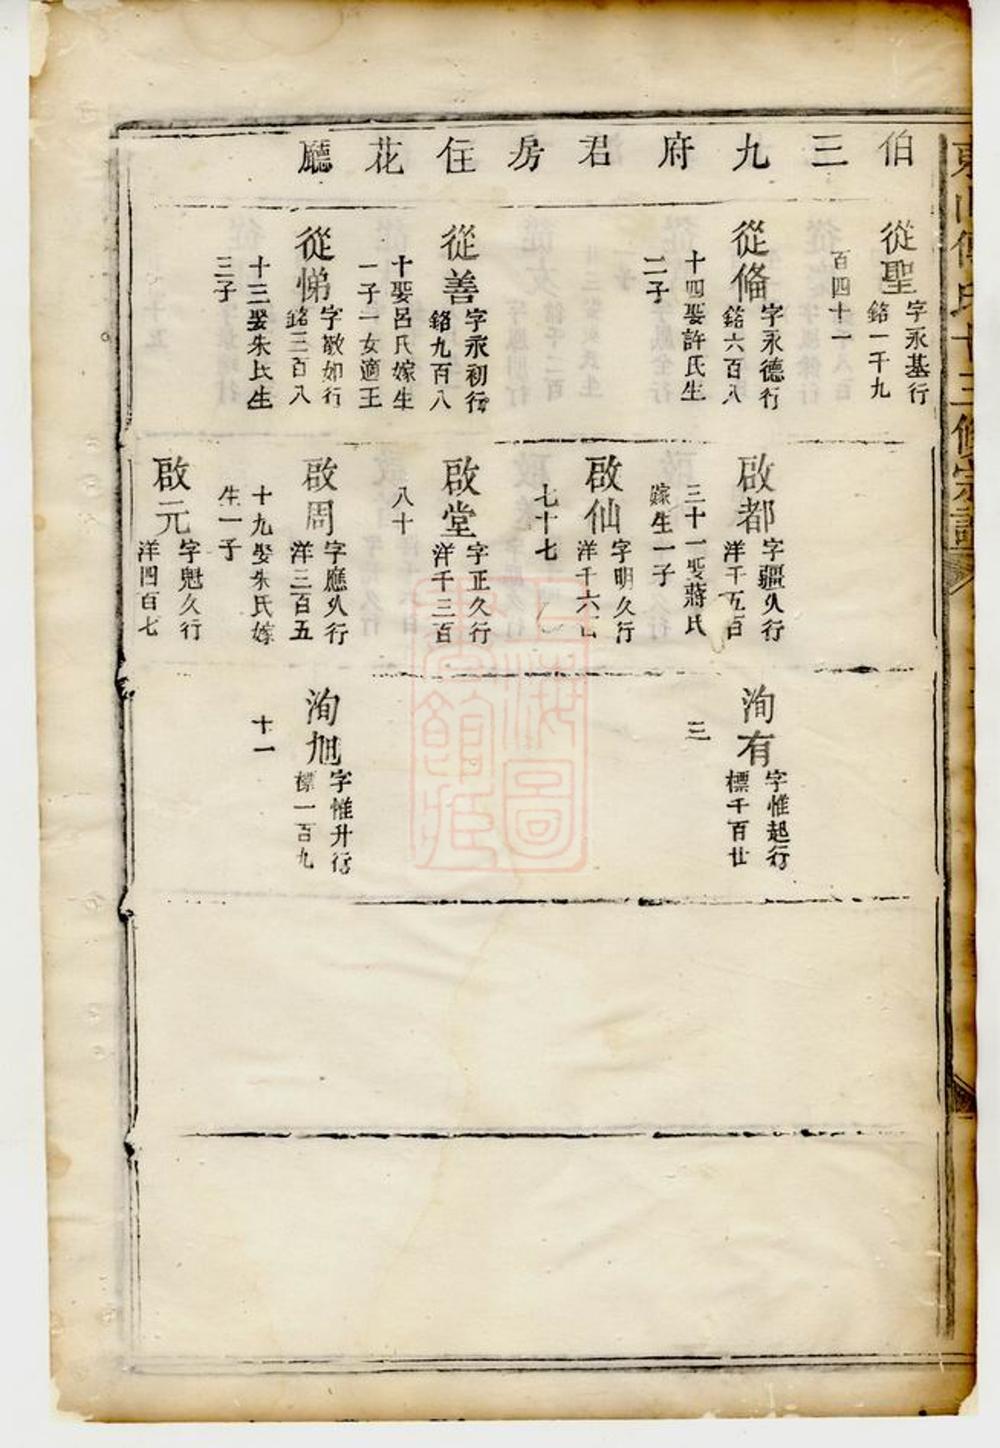 伯三九府君房住花廳
從聖
字永基行
銘一千九
百四十一
從脩
字永德行
銘六百八
十四娶許氏生
二子
從善
字永初行
銘九百八
十娶呂氏嫁生
一子一女適王
從悌
字敬如行
銘三百八
十三娶朱氏生
三子
啟都
字疆久行
洋千五百
三十一娶蔣氏
嫁生一子
啟仙
字明久行
洋千六百
七十七
啟堂
字正久行
洋千三百
八十
啟周
字應久行
洋三百五
十九娶朱氏嫁
生一子
啟元
字魁久行
洋四百七
洵有
字惟起行
標千百廿
三
洵旭
字惟升行
標一百九
十一